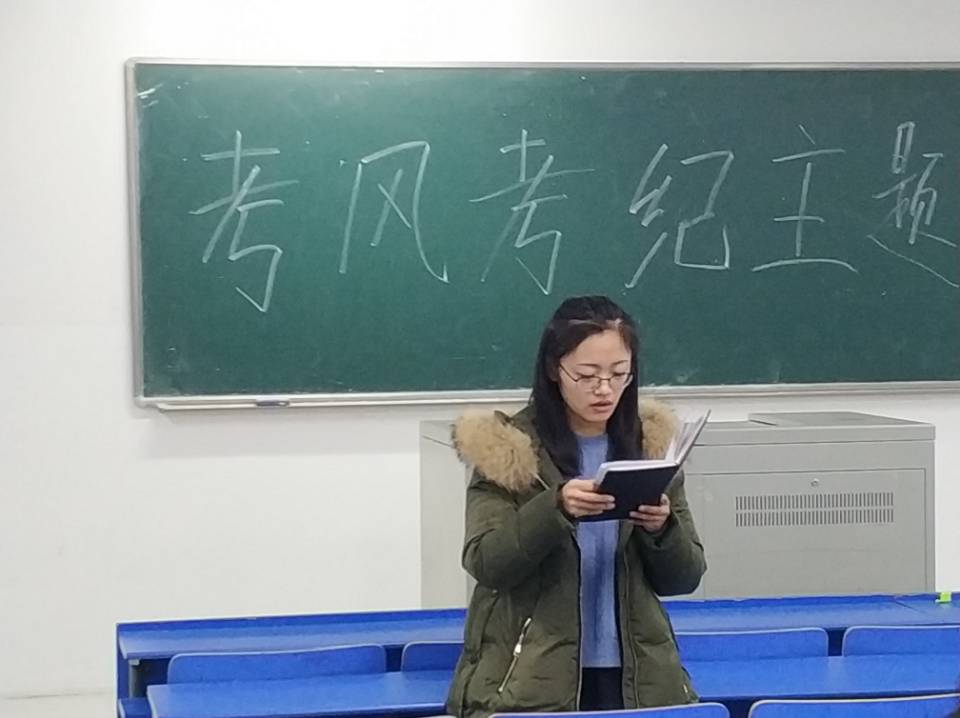 考风考纪主题